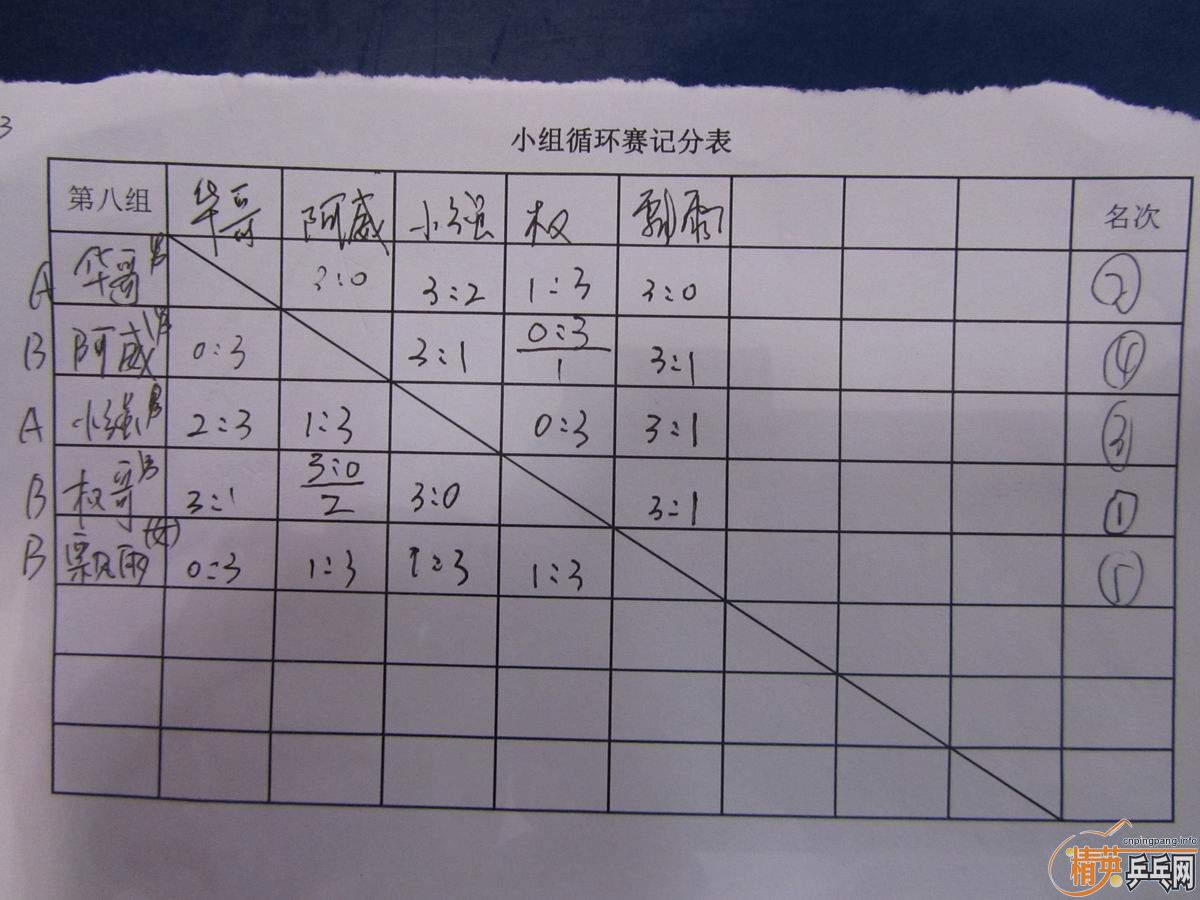 3
小组循环赛记分表
第八组 华哥 阿威 小强 权 飘雨 名次
A 华哥 男 3:0 3:2 1:3 3:0 ②
B 阿威 男 0:3 3:1 0:3 1 3:1 ④
A 小强 男 2:3 1:3 0:3 3:1 ③
B 权哥 男 3:1 3:0 2 3:0 3:1 ①
B 飘雨 (女) 0:3 1:3 1:3 1:3 ⑤
cnpingpang.info
精英乒乓网